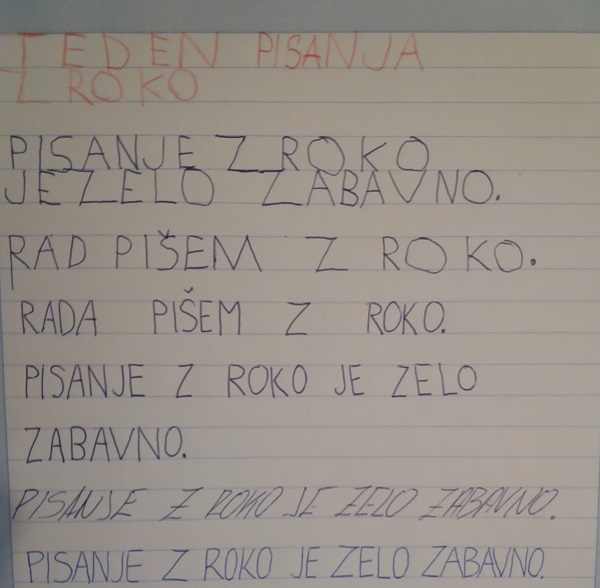 TEDEN PISANJA
Z ROKO
PISANJE Z ROKO
JE ZELO ZABAVNO.
RAD PIŠEM Z ROKO.
RADA PIŠEM Z ROKO.
PISANJE Z ROKO JE ZELO
ZABAVNO.
PISANJE Z ROKO JE ZELO ZABAVNO.
PISANJE Z ROKO JE ZELO ZABAVNO.